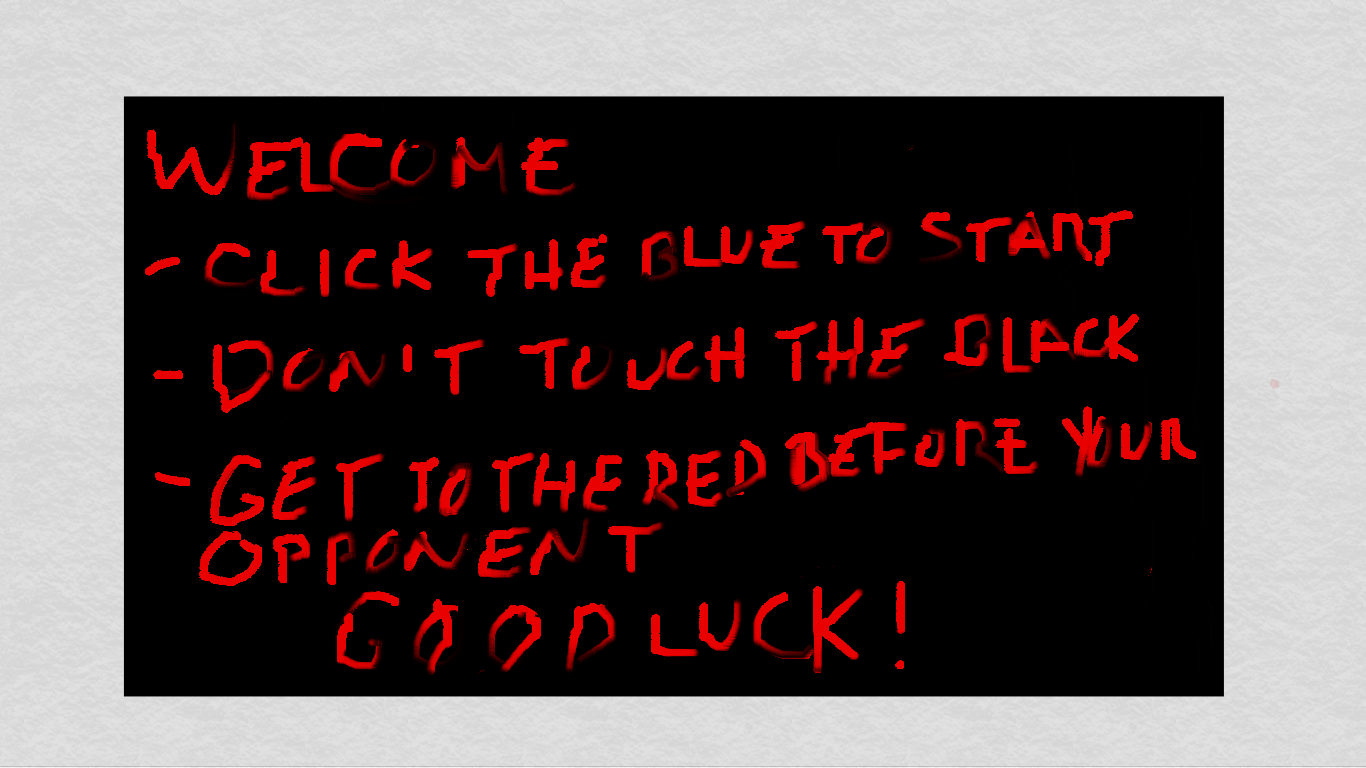 WELCOME
- CLICK THE BLUE TO START
- DON'T TOUCH THE BLACK
- GET TO THE RED BEFORE YOUR
OPPONENT
GOOD LUCK!